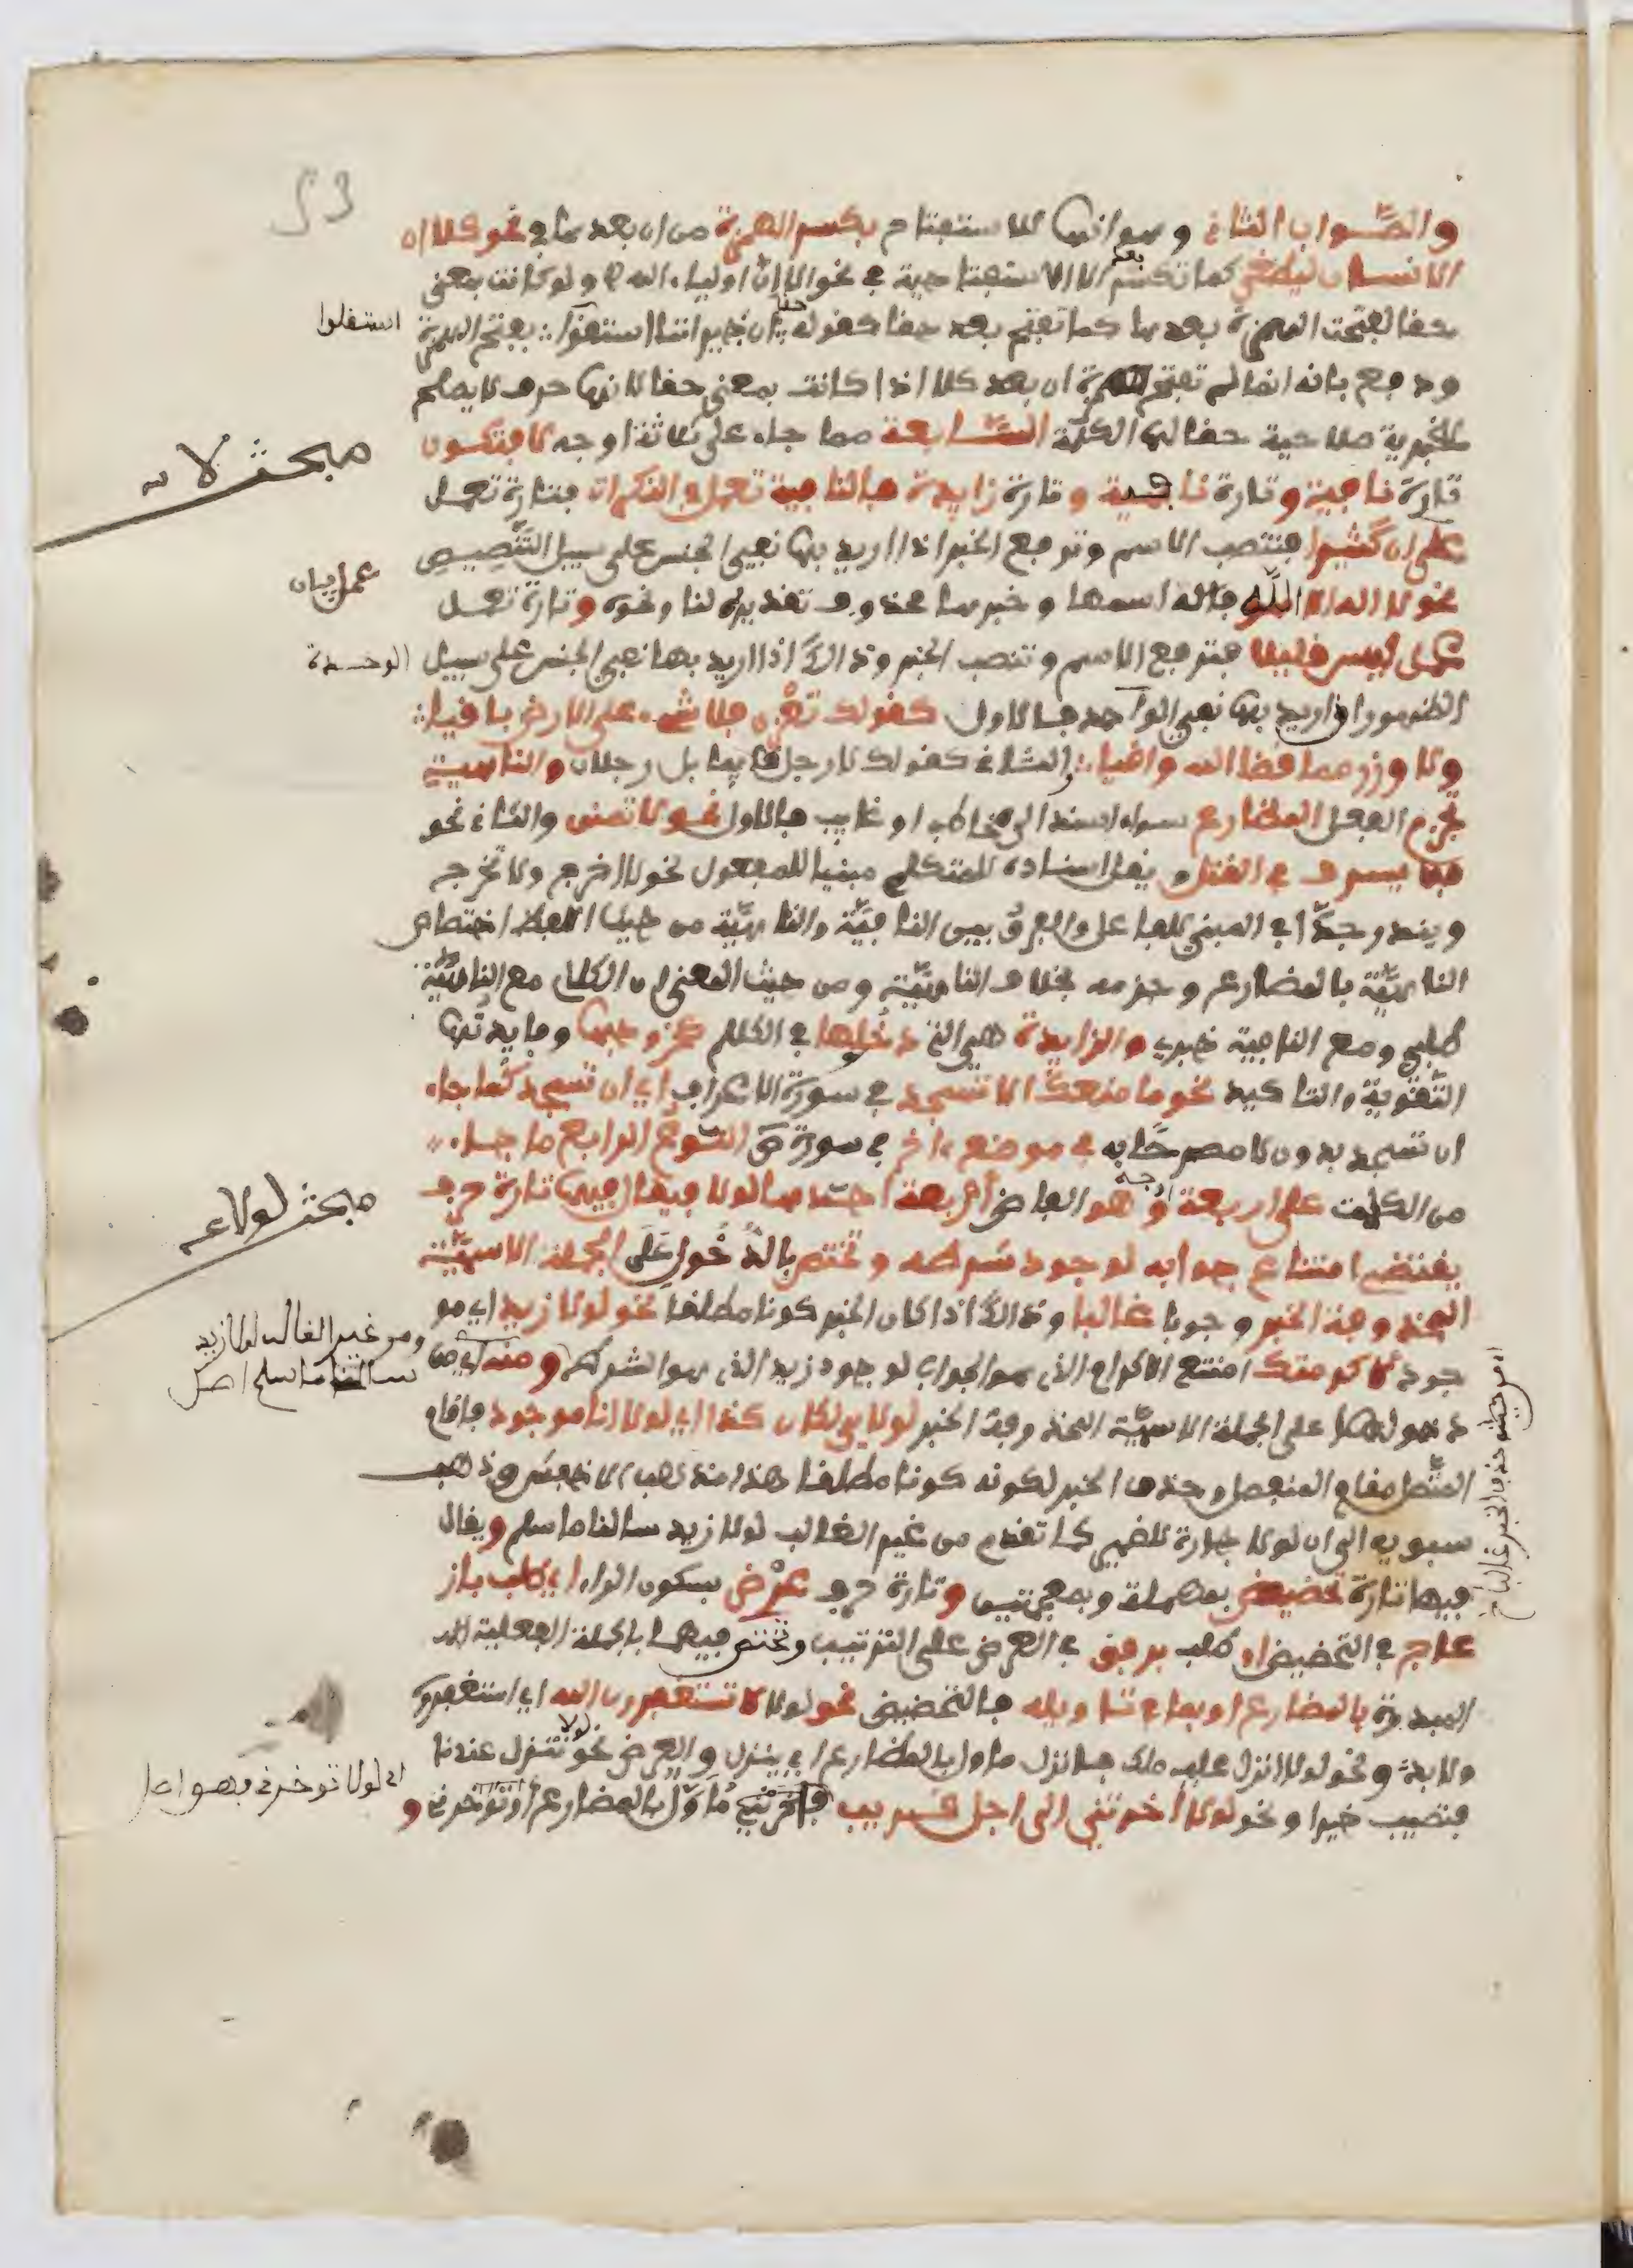 53
والصواب الثاني وهو انها للاستفتاح بكسر الهمزة من ان بعدها في نحو كلا ان
الانسان ليطغى كما تكسر بعد الا الاستفتاحية في نحو الا ان اولياء الله ولو كانت بمعنى
حقا لفتحت الهمزة بعدها كما تفتح بعد حقا كقوله حقا ان جيرتنا استقلوا بفتح الهمزة
استقلوا
ودفع بانه انما لم تفتح همزة ان بعد كلا اذا كانت بمعنى حقا لانها حرف لا يصلح
للخبرية صلاحية حقا لها الكلمة السابعة مما جاء على ثلاثة اوجه لا فتكون
مبحث لا
تارة نافية وتارة ناهية وتارة زايدة فالنافية تعمل في النكرات فتارة تعمل
عمل ان كثيرا فتنصب الاسم وترفع الخبر اذا اريد بها نفي الجنس على سبيل التنصيص
نحو لا اله الا الله فاله اسمها وخبرها محذوف تقديره لنا ونحوه وتارة تعمل
عمل ليس قليلا فترفع الاسم وتنصب الخبر وذالك اذا اريد بها نفي الجنس على سبيل
الظهور او اريد بها نفي الواحد فالاول كقولك تعز فلا شيء على الارض باقيا
الوحدة
ولا وزر مما قضا الله واقيا والثاني كقولك لا رجل قايما بل رجلان والناهية
تجزم الفعل المضارع سواء اسند الى مخاطب او غايب فالاول نحو لا تمنن والثاني نحو
فلا يسرف في القتل ويقل اسناده للمتكلم مبنيا للمفعول نحو لا اخرج ولا نخرج
ويندر جدا في المبني للفاعل والفرق بين النافية والناهية من حيث اللفظ اختصاص
الناهية بالمضارع وجزمه بخلاف النافية ومن حيث المعنى ان الكلام مع الناهية
طلبي ومع النافية خبري والزايدة هي التي دخولها في الكلام كخروجها وفايدتها
التقوية والتاكيد نحو ما منعك الا تسجد في سورة الاعراف اي ان تسجد كما جاء
ان تسجد بدون لا مصرحا به في موضع اخر في سورة ص النوع الرابع ما جاء
من الكلمات على اربعة اوجه وهو الفاظ اربعة احدها لولا فيقال فيها تارة حرف
مبحث لولا
يقتضي امتناع جوابه لوجود شرطه وتختص بالدخول على الجملة الاسمية
المحذوفة الخبر وجوبا غالبا وذالك اذا كان الخبر كونا مطلقا نحو لولا زيد اي مو
ومن غير الغالب لولا زيد
سالمنا ما سلم اصل
جود لاكرمتك امتنع الاكرام الذي هو الجواب لوجود زيد الذي هو الشرط ومنه اي من
دخولها على الجملة الاسمية المحذوفة الخبر لولاي لكان كذا اي لولا انا موجود فاقام
المتصل مقام المنفصل وحذف الخبر لكونه كونا مطلقا هذا مذهب الاخفش وذهب
سبويه الى ان لولا جارة للضمير كما تقدم من غير الغالب لولا زيد سالمنا ما سلم ويقال
فيها تارة تحضيض بمهملة وبمعجمتين وتارة حرف عرض بسكون الراء اي طلب باز
عاج في التحضيض او طلب برفق في العرض على الترتيب وتختص فيهما بالجملة الفعلية
المبدوة بالمضارع او بما في تاويله فالتحضيض نحو لولا تستغفرون الله اي استغفروه
ولا بد ونحو لولا انزل عليه ملك فانزل ماول بالمضارع اي ينزل والعرض نحو لولا تنزل عندنا
فتصيب خيرا ونحو لولا اخرتني الى اجل قريب فاخرتني ماول بالمضارع اي توخرني و
اي لولا توخرني